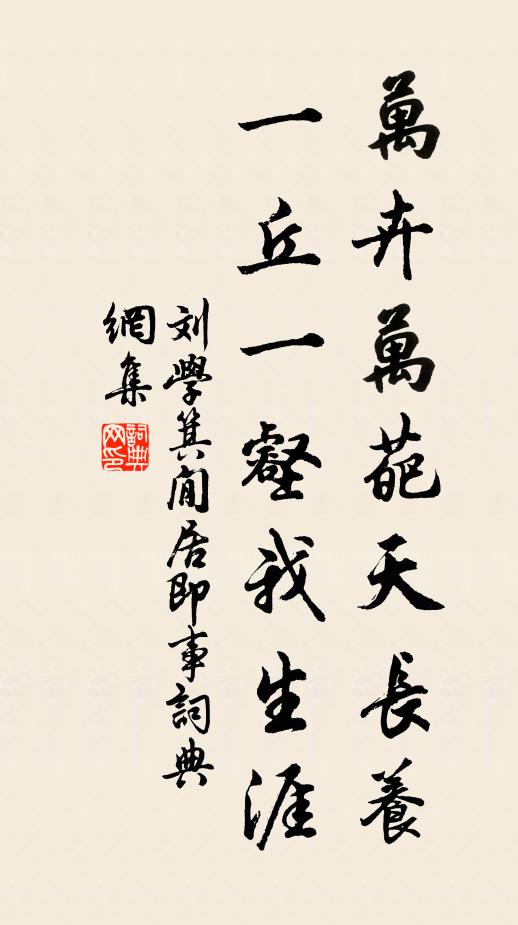 萬卉萬葩天長養
一丘一壑我生涯
刘學箕閒居即事詞典
網集
詞典網印